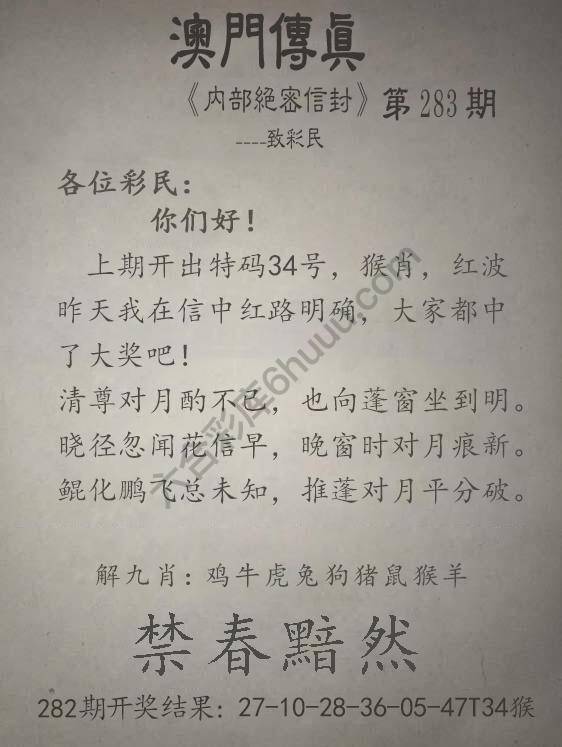 澳門傳眞
《內部絕密信封》第283期
----致彩民
各位彩民：
你们好！
上期开出特码34号，猴肖，红波
昨天我在信中红路明确，大家都中
了大奖吧！
清尊对月酌不已，也向蓬窗坐到明。
晓径忽闻花信早，晚窗时对月痕新。
鲲化鹏飞总未知，推蓬对月平分破。
六合彩库6huuu.com
解九肖：鸡牛虎兔狗猪鼠猴羊
禁春黯然
282期开奖结果：27-10-28-36-05-47T34猴